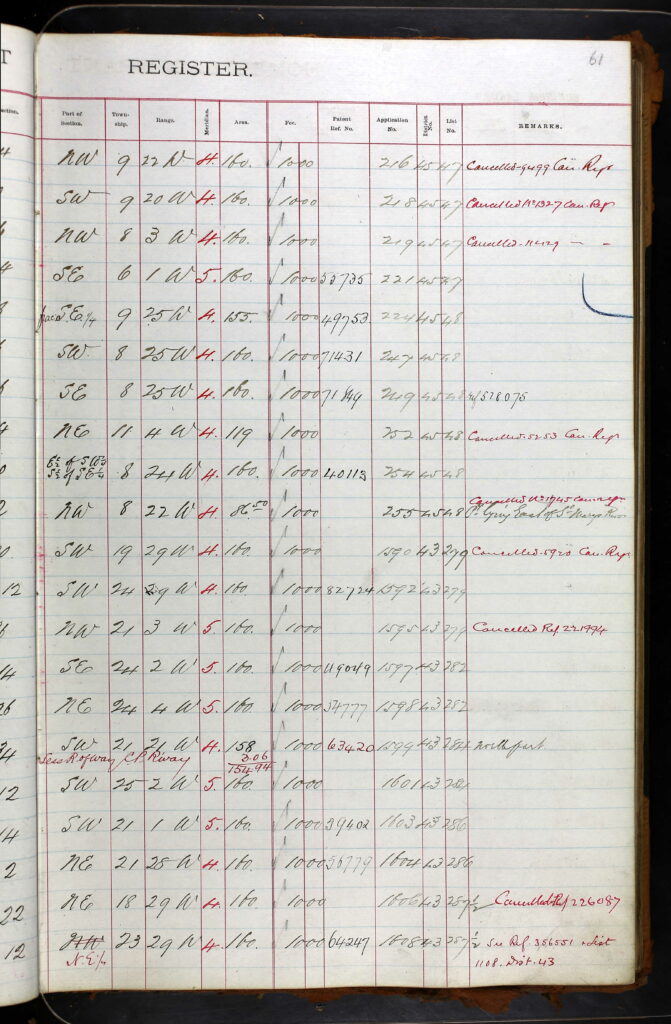 61
REGISTER.
Part of Section. Township. Range. Meridian. Area. Fee. Patent Ref. No. Application No. District No. List No. REMARKS.
NW 9 22 W 4. 160. 1000 216 45 47 Cancelled 9499 Can. Reg.
SW 9 20 W 4. 160. 1000 218 45 47 Cancelled No 1327 Can. Reg
NW 8 3 W 4. 160. 1000 219 45 47 Cancelled
SE 6 1 W 5. 160. 1000 221 45 47
S.E. 1/4 9 25 W 4. 155. 1000 49753. 224 45 48
SW. 8 25 W 4. 160. 1000 71431 247 45 48
SE 8 25 W 4. 160. 1000 249 45 48 528075
NE 11 4 W 4. 119 1000 252 45 48 Cancelled 5253 Can. Reg.
8 24 W 4. 160. 1000 40113 254 45 48
Cancelled No 1945 Can. Reg.
NW 8 22 W 4. 86.50 1000 255 45 48 Pt. lying East of St. Marys River
SW 19 29 W 4. 160. 1000 1590 43 279 Cancelled 5920 Can. Reg.
SW 24 29 W 4. 160. 1000 82724 1592 43 279
NW 21 3 W 5. 160. 1000 1595 43 279 Cancelled Ref. 221994
SE 24 2 W 5. 160. 1000 119049 1597 43 282
NE 24 4 W 5. 160. 1000 1598 43 282
SW 21 21 W 4. 158 1000 63420 1599 43 north part
Less R. of way C.P. R'way 3.06
154.94
SW 25 2 W 5. 160. 1000 1601 43
SW 21 1 W 5. 160. 1000 39402 1603 43 286
NE 21 28 W 4. 160. 1000 56779 1604 43 286
NE 18 29 W 4. 160. 1000 1606 43 257½ Cancelled Ref 226087
NW 23 29 W 4. 160. 1000 64247 1608 43 257½ See Ref. 356551 & List
N.E. ¼ 1108. Dist. 43